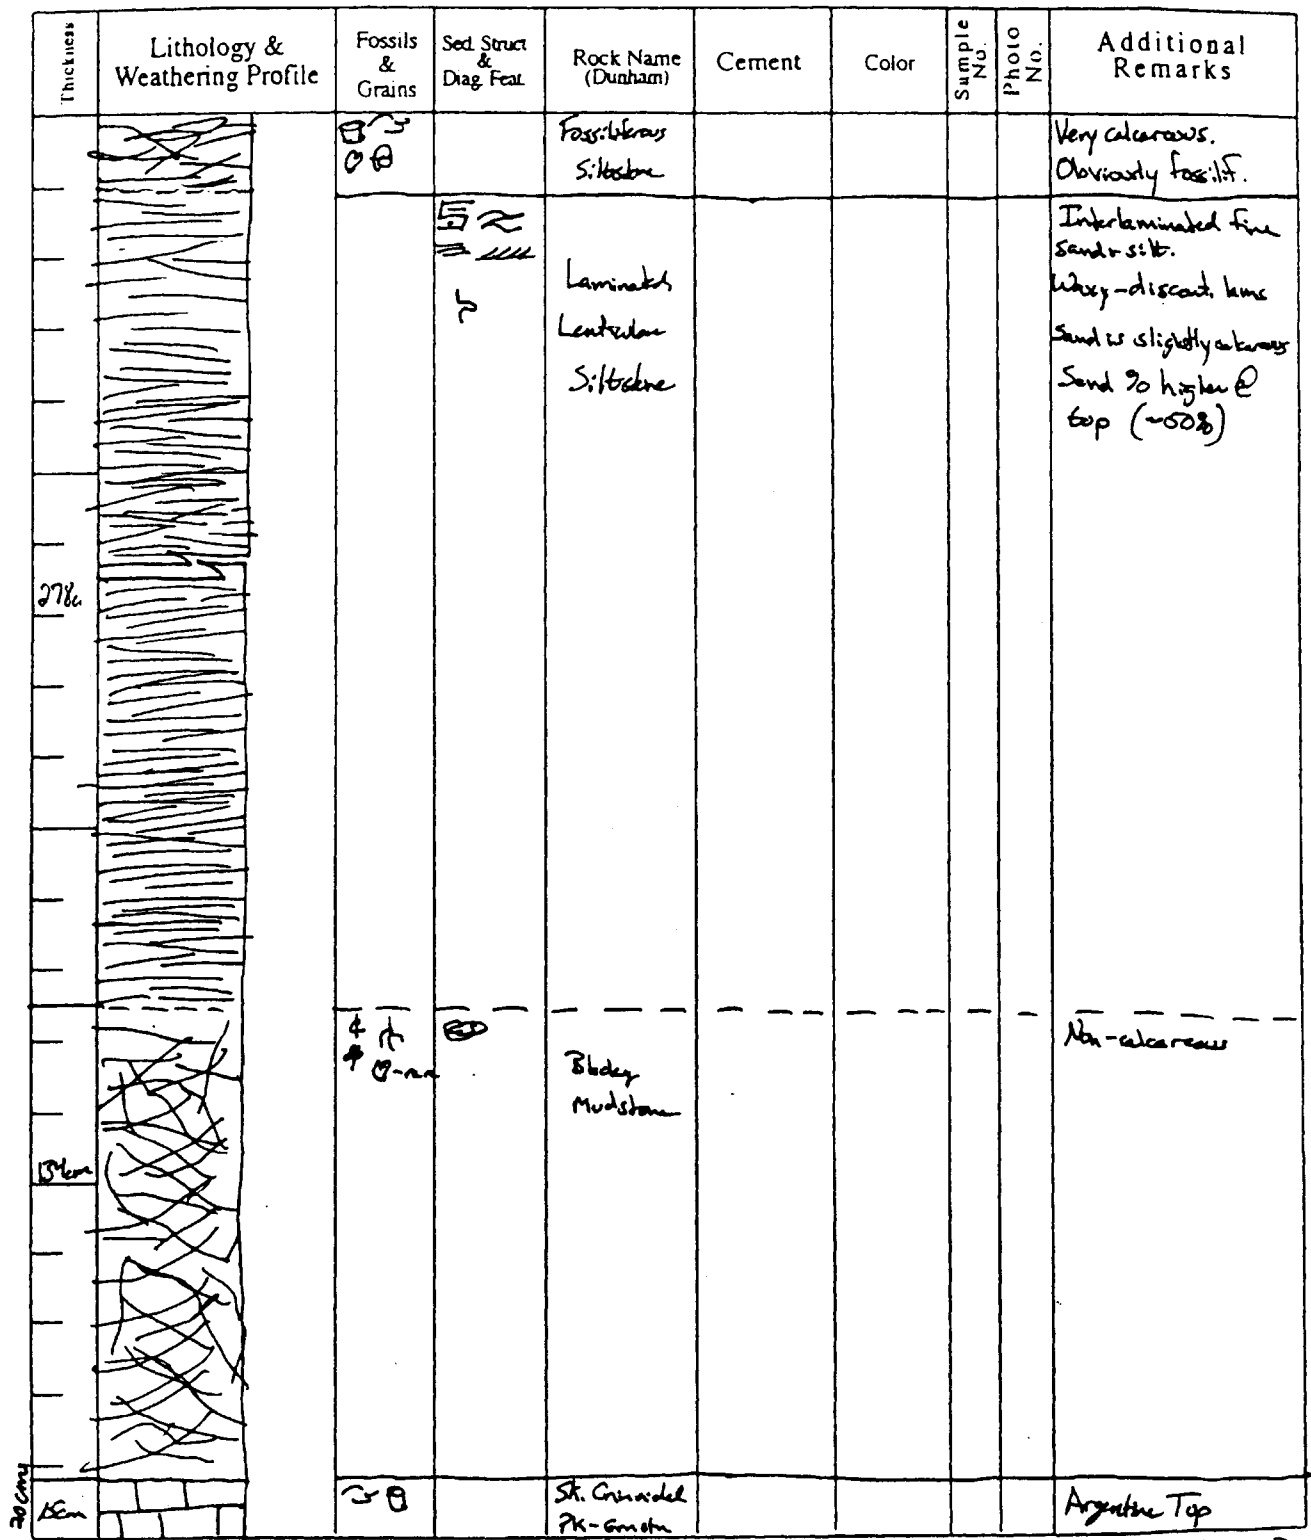 Thickness
Lithology &
Weathering Profile
Fossils
&
Grains
Sed. Struct
&
Diag. Feat.
Rock Name
(Dunham)
Cement
Color
Sample
No.
Photo
No.
Additional
Remarks
Fossiliferous
Siltstone
Very calcareous.
Obviously fossilif.
Interlaminated fine
sand & silt.
Laminated,
Lenticular
Siltstone
Wavy-discont. lams
Sand is slightly calcareous
Sand % higher @
top (~50%)
278cm
Blocky
Mudstone
Non-calcareous
20cm
15cm
Sk. Crinoidal
Pk-Grnstn
Argentine Top